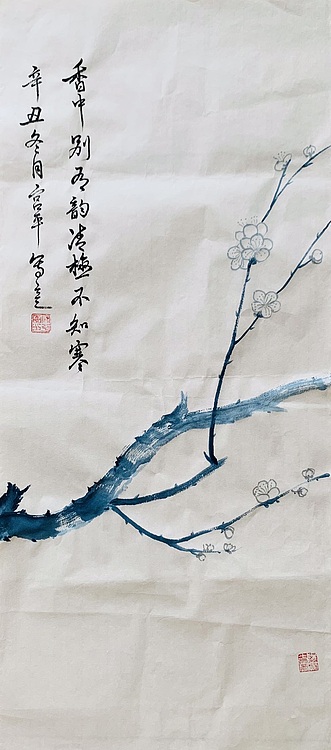 香中别有韵清极不知寒
辛丑冬月宫平写意